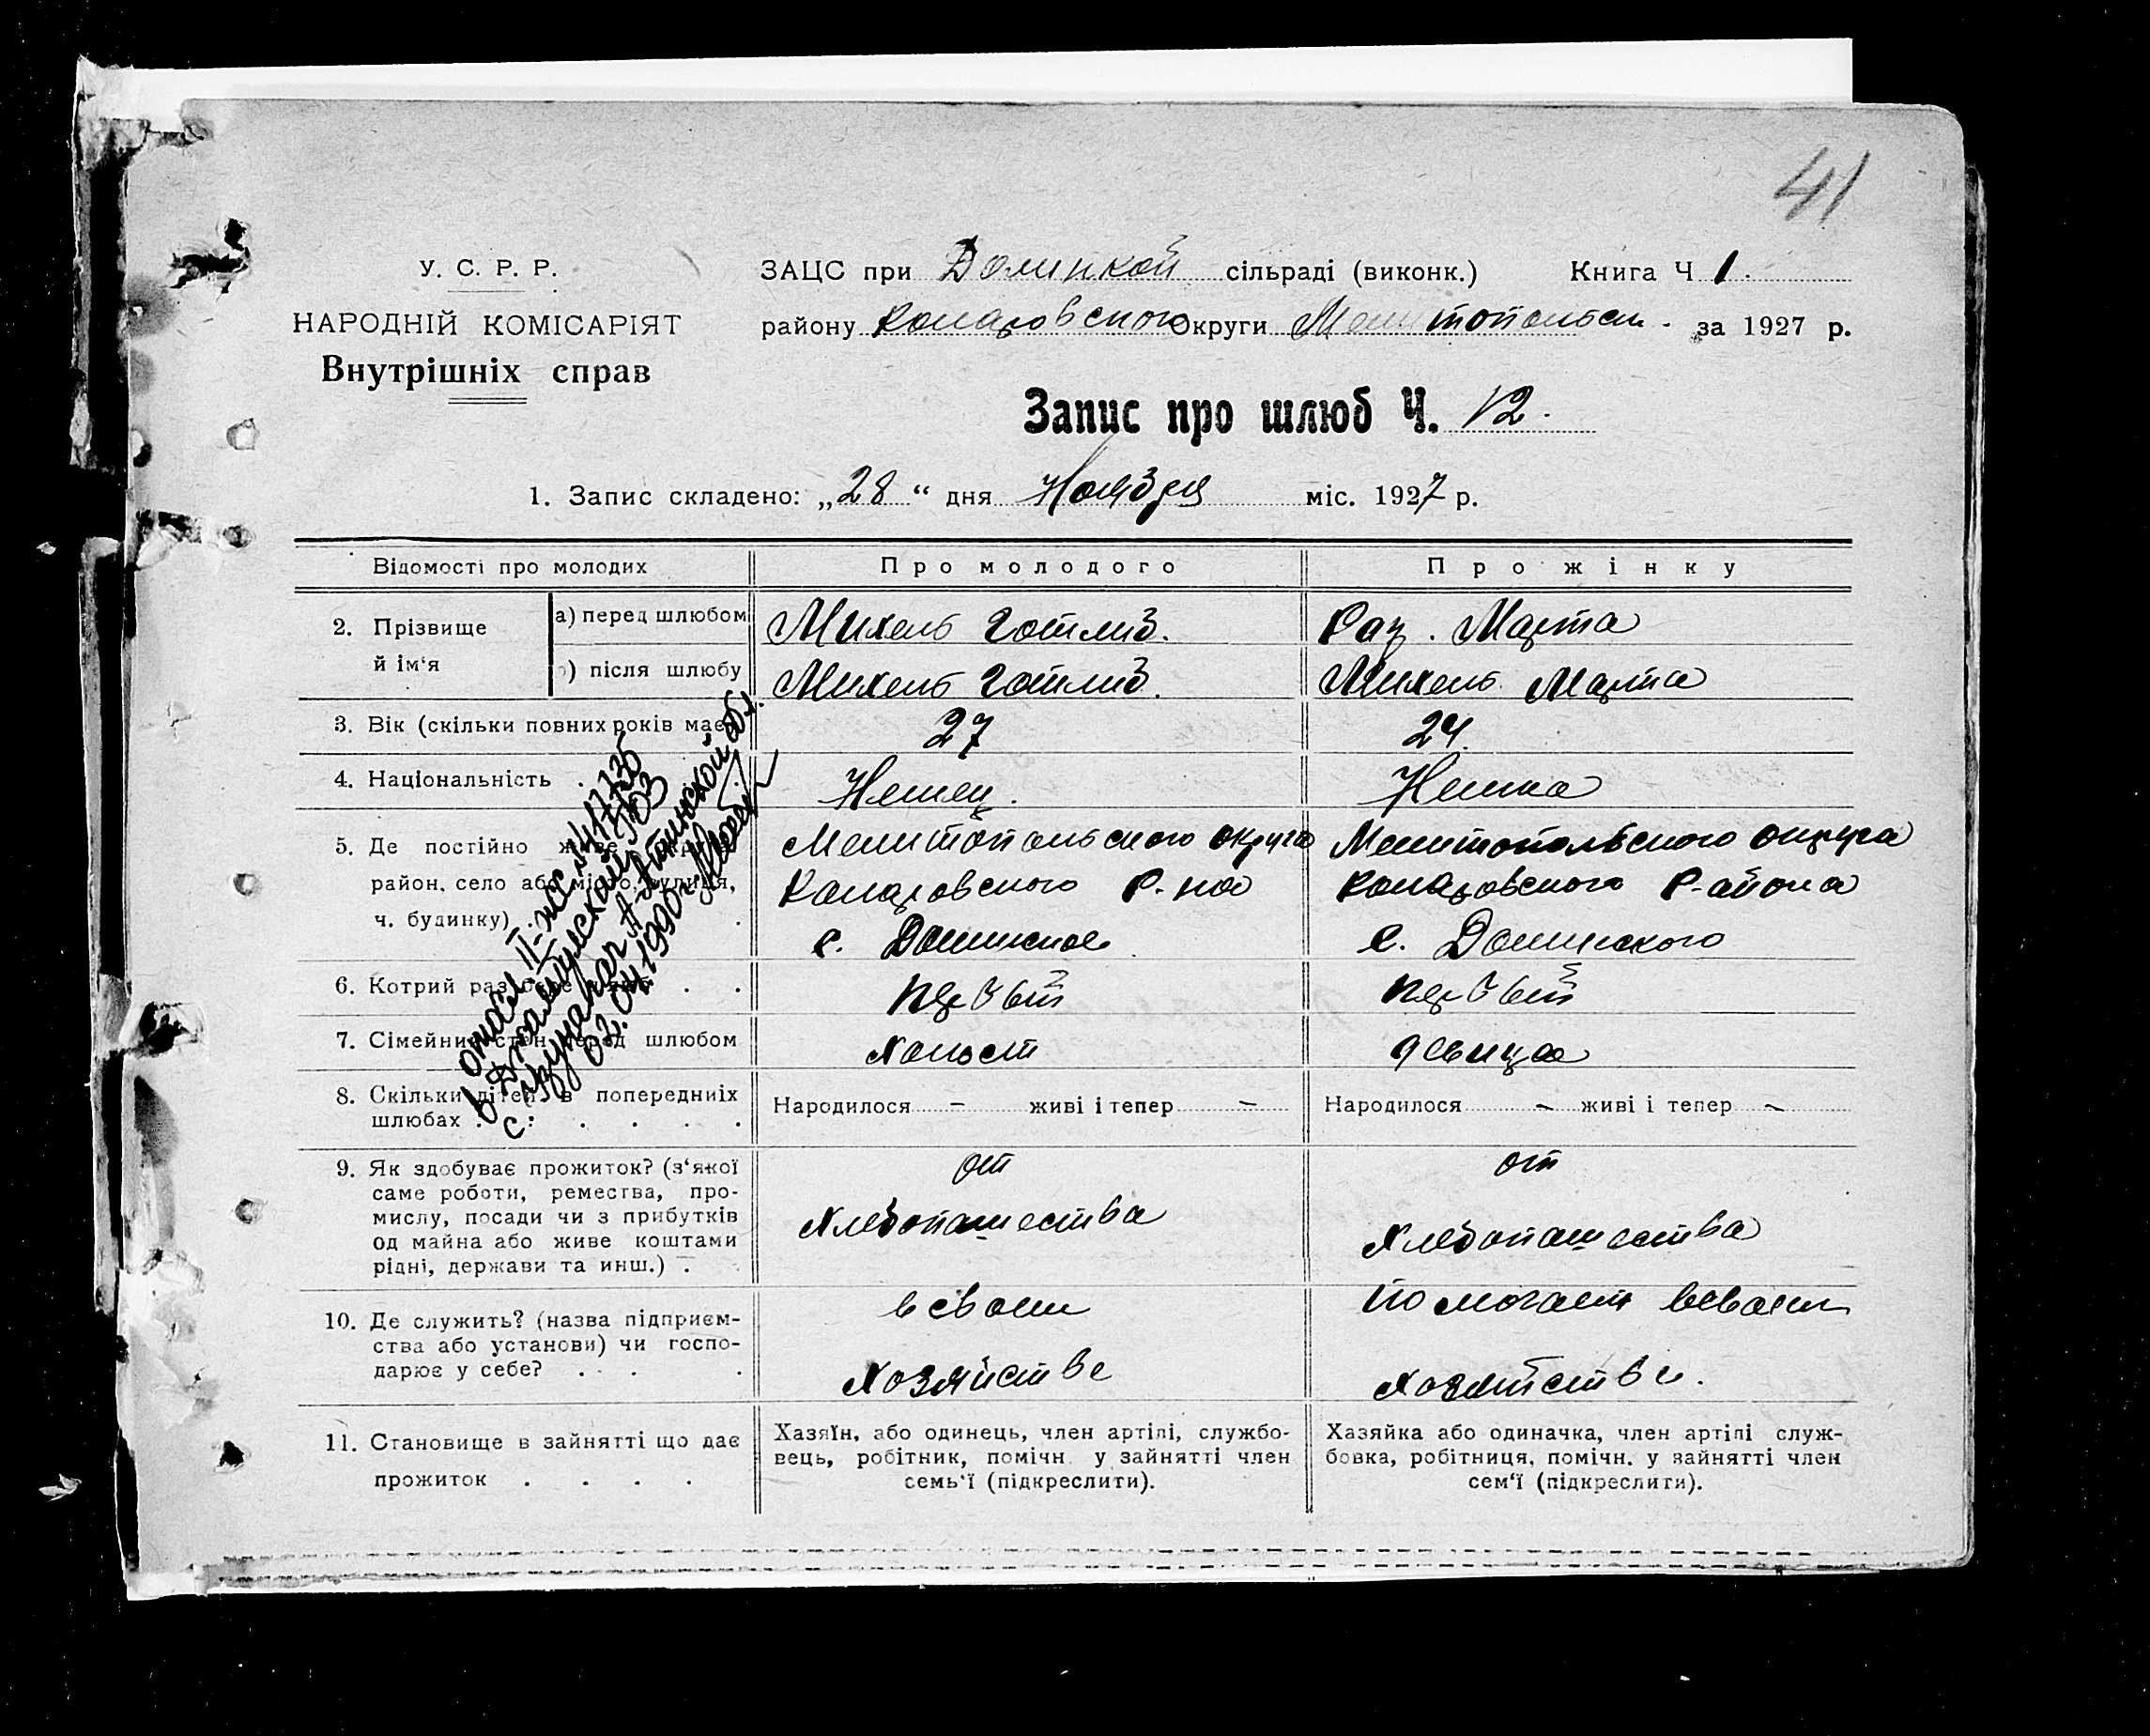 41
У. С. Р. Р.
НАРОДНІЙ КОМІСАРІЯТ
Внутрішніх справ
ЗАЦС при Долинкой сільраді (виконк.) Книга Ч 1.
району Комаровского Округи Мелитопольск. за 1927 р.
Запис про шлюб Ч. 12.
1. Запис складено: „28“ дня Ноября міс. 1927 р.
Відомості про молодих
Про молодого
Про жінку
2. Прізвище й ім‘я
а) перед шлюбом
Михель Готлиб.
Рац. Марта
б) після шлюбу
Михель Готлиб.
Михель Марта
3. Вік (скільки повних років має)
27
24.
4. Національність .
Немец.
Немка
5. Де постійно живе
район, село або місто, вулиця,
ч. будинку)
Мелитопольского округа
Комаровского Р-на
с. Долинское
Мелитопольского округа
Комаровского Р-айона
с. Долинского
6. Котрий раз бере шлюб . .
первый
первый
7. Сімейний стан перед шлюбом
Холост
девица
8. Скільки дітей в попередніх
шлюбах . . . . . .
Народилося – живі і тепер –
Народилося – живі і тепер –
9. Як здобуває прожиток? (з‘якої
саме роботи, ремества, про-
мислу, посади чи з прибутків
од майна або живе коштами
рідні, держави та инш.) .
от
Хлебопашества
от
Хлебопашества
10. Де служить? (назва підприєм-
ства або установи) чи госпо-
дарює у себе? . . . .
в своем
Хозяйстве
помогает всвоем
Хозяйстве.
11. Становище в зайнятті що дає
прожиток . . . .
Хазяїн, або одинець, член артілі, службо-
вець, робітник, помічн. у зайнятті член
семь‘ї (підкреслити).
Хазяйка або одиначка, член артілі служ-
бовка, робітниця, помічн. у зайнятті член
сем‘ї (підкреслити).
II-ЖС
02.04.1990г.